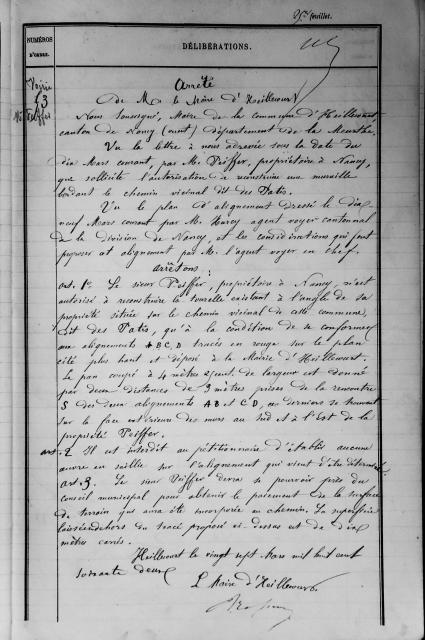 25e feuillet.
NUMÉROS
D'ORDRE.
DÉLIBÉRATIONS.
Voirie
13
Arrêté
De Mr le Maire d'Heillecourt
Nous soussigné, Maire de la commune d'Heillecourt,
canton de Nancy (ouest) Département de la Meurthe.
Vu la lettre à nous adressée sous la date du
dix Mars courant, par Mr. Pfiffer, propriétaire à Nancy,
qui sollicite l'autorisation de reconstruire une muraille
bordant le chemin vicinal dit des Patis.
Vu le plan d'alignement dressé le dix
neuf Mars courant par Mr. agent voyer cantonnal
de la division de Nancy, et les considérations qui font
proposer cet alignement par Mr. l'agent voyer en chef.
Arrêtons:
art. 1er Le sieur Pfiffer, propriétaire à Nancy, est
autorisé à reconstruire la tourelle existant à l'angle de sa
propriété située sur le chemin vicinal de cette commune,
dit des Patis, qu'à la condition de se conformer
aux alignements A B C D tracés en rouge sur le plan
cité plus haut et déposé à la Mairie d'Heillecourt.
Le pan coupé à 4 mètres 2 cent. de largeur est donné
par deux distances de 3 mètres prises de la rencontre
S des deux alignements A B et C D, ces derniers se trouvant
sur la face extérieure des murs au Sud et à l'Est de la
propriété Pfiffer.
art. 2 Il est interdit au pétitionnaire d'établir aucune
œuvre en saillie sur l'alignement qui vient d'être déterminé.
art. 3. Le sieur Pfiffer devra se pourvoir près du
Conseil municipal pour obtenir le paiement de la surface
de terrain qui aura été incorporée au chemin. La superficie
laissée en dehors du tracé proposé ci-dessus est de dix
mètres carrés.
Heillecourt le vingt sept Mars mil huit cent
soixante deux
L Maire d'Heillecourt